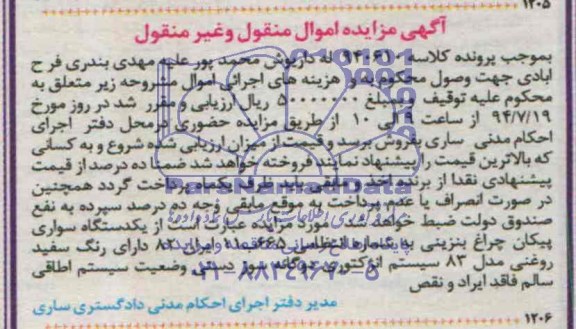 ۱۲۰۵
آگهی مزایده اموال منقول وغیر منقول
بموجب پرونده کلاسه ۹۴۰۶۱۰ له داریوش محمد پور علیه مهدی بندری فرح
ابادی جهت وصول محکوم به و هزینه های اجرائی اموال مشروحه زیر متعلق به
محکوم علیه توقیف و بمبلغ ۵۰۰۰۰۰۰۰ ریال ارزیابی و مقرر شد در روز مورخ
۹۴/۷/۱۹ از ساعت ۹ الی ۱۰ از طریق مزایده حضوری درمحل دفتر اجرای
احکام مدنی ساری بفروش برسد و قیمت از میزان ارزیابی شده شروع و به کسانی
که بالاترین قیمت را پیشنهاد نمایند فروخته خواهد شد ضمنا ده درصد از قیمت
پیشنهادی نقدا از برنده اخذ و مابقی باید ظرف یکماه پرداخت گردد همچنین
در صورت انصراف یا عدم پرداخت به موقع مابقی وجه ده درصد سپرده به نفع
صندوق دولت ضبط خواهد شد. مورد مزایده عبارت است از یکدستگاه سواری
پیکان چراغ بنزینی به شماره انتظامی ایران ۸۲ دارای رنگ سفید
روغنی مدل ۸۳ سیستم انژکتوری دوگانه سوز دستی وضعیت سیستم اطاقی
سالم فاقد ایراد و نقص
مدیر دفتر اجرای احکام مدنی دادگستری ساری
۱۲۰۶